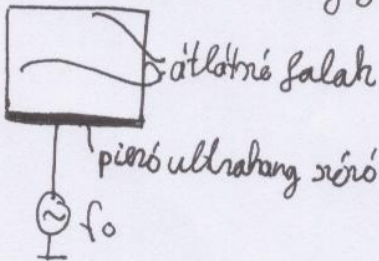 átlátszó falak
piezó ultrahang szóró
~ f₀